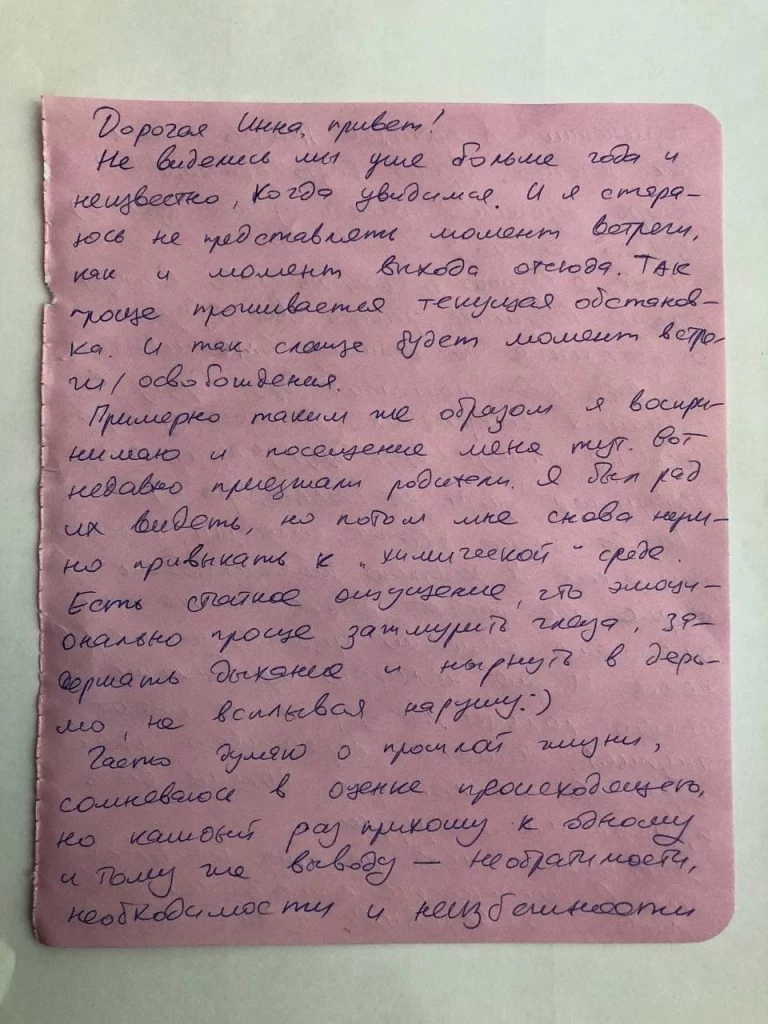 Дорогая Инна, привет!
Не виделись мы уже больше года и
неизвестно, когда увидимся. И я стара-
юсь не представлять момент встречи,
как и момент выхода отсюда. Так
проще проживается текущая обстанов-
ка. И так слаще будет момент встре-
чи/освобождения.
Примерно таким же образом я воспри-
нимаю и посещение меня тут. Вот
недавно приезжали родители. Я был рад
их видеть, но потом мне снова нуж-
но привыкать к "химической" среде.
Есть стойкое ощущение, что эмоци-
онально проще зажмурить глаза, за-
держать дыхание и нырнуть в дерь-
мо, не всплывая наружу:)
Часто думаю о прошлой жизни,
сомневаюсь в оценке происходящего,
но каждый раз прихожу к одному
и тому же выводу — необратимости,
необходимости и неизбежности